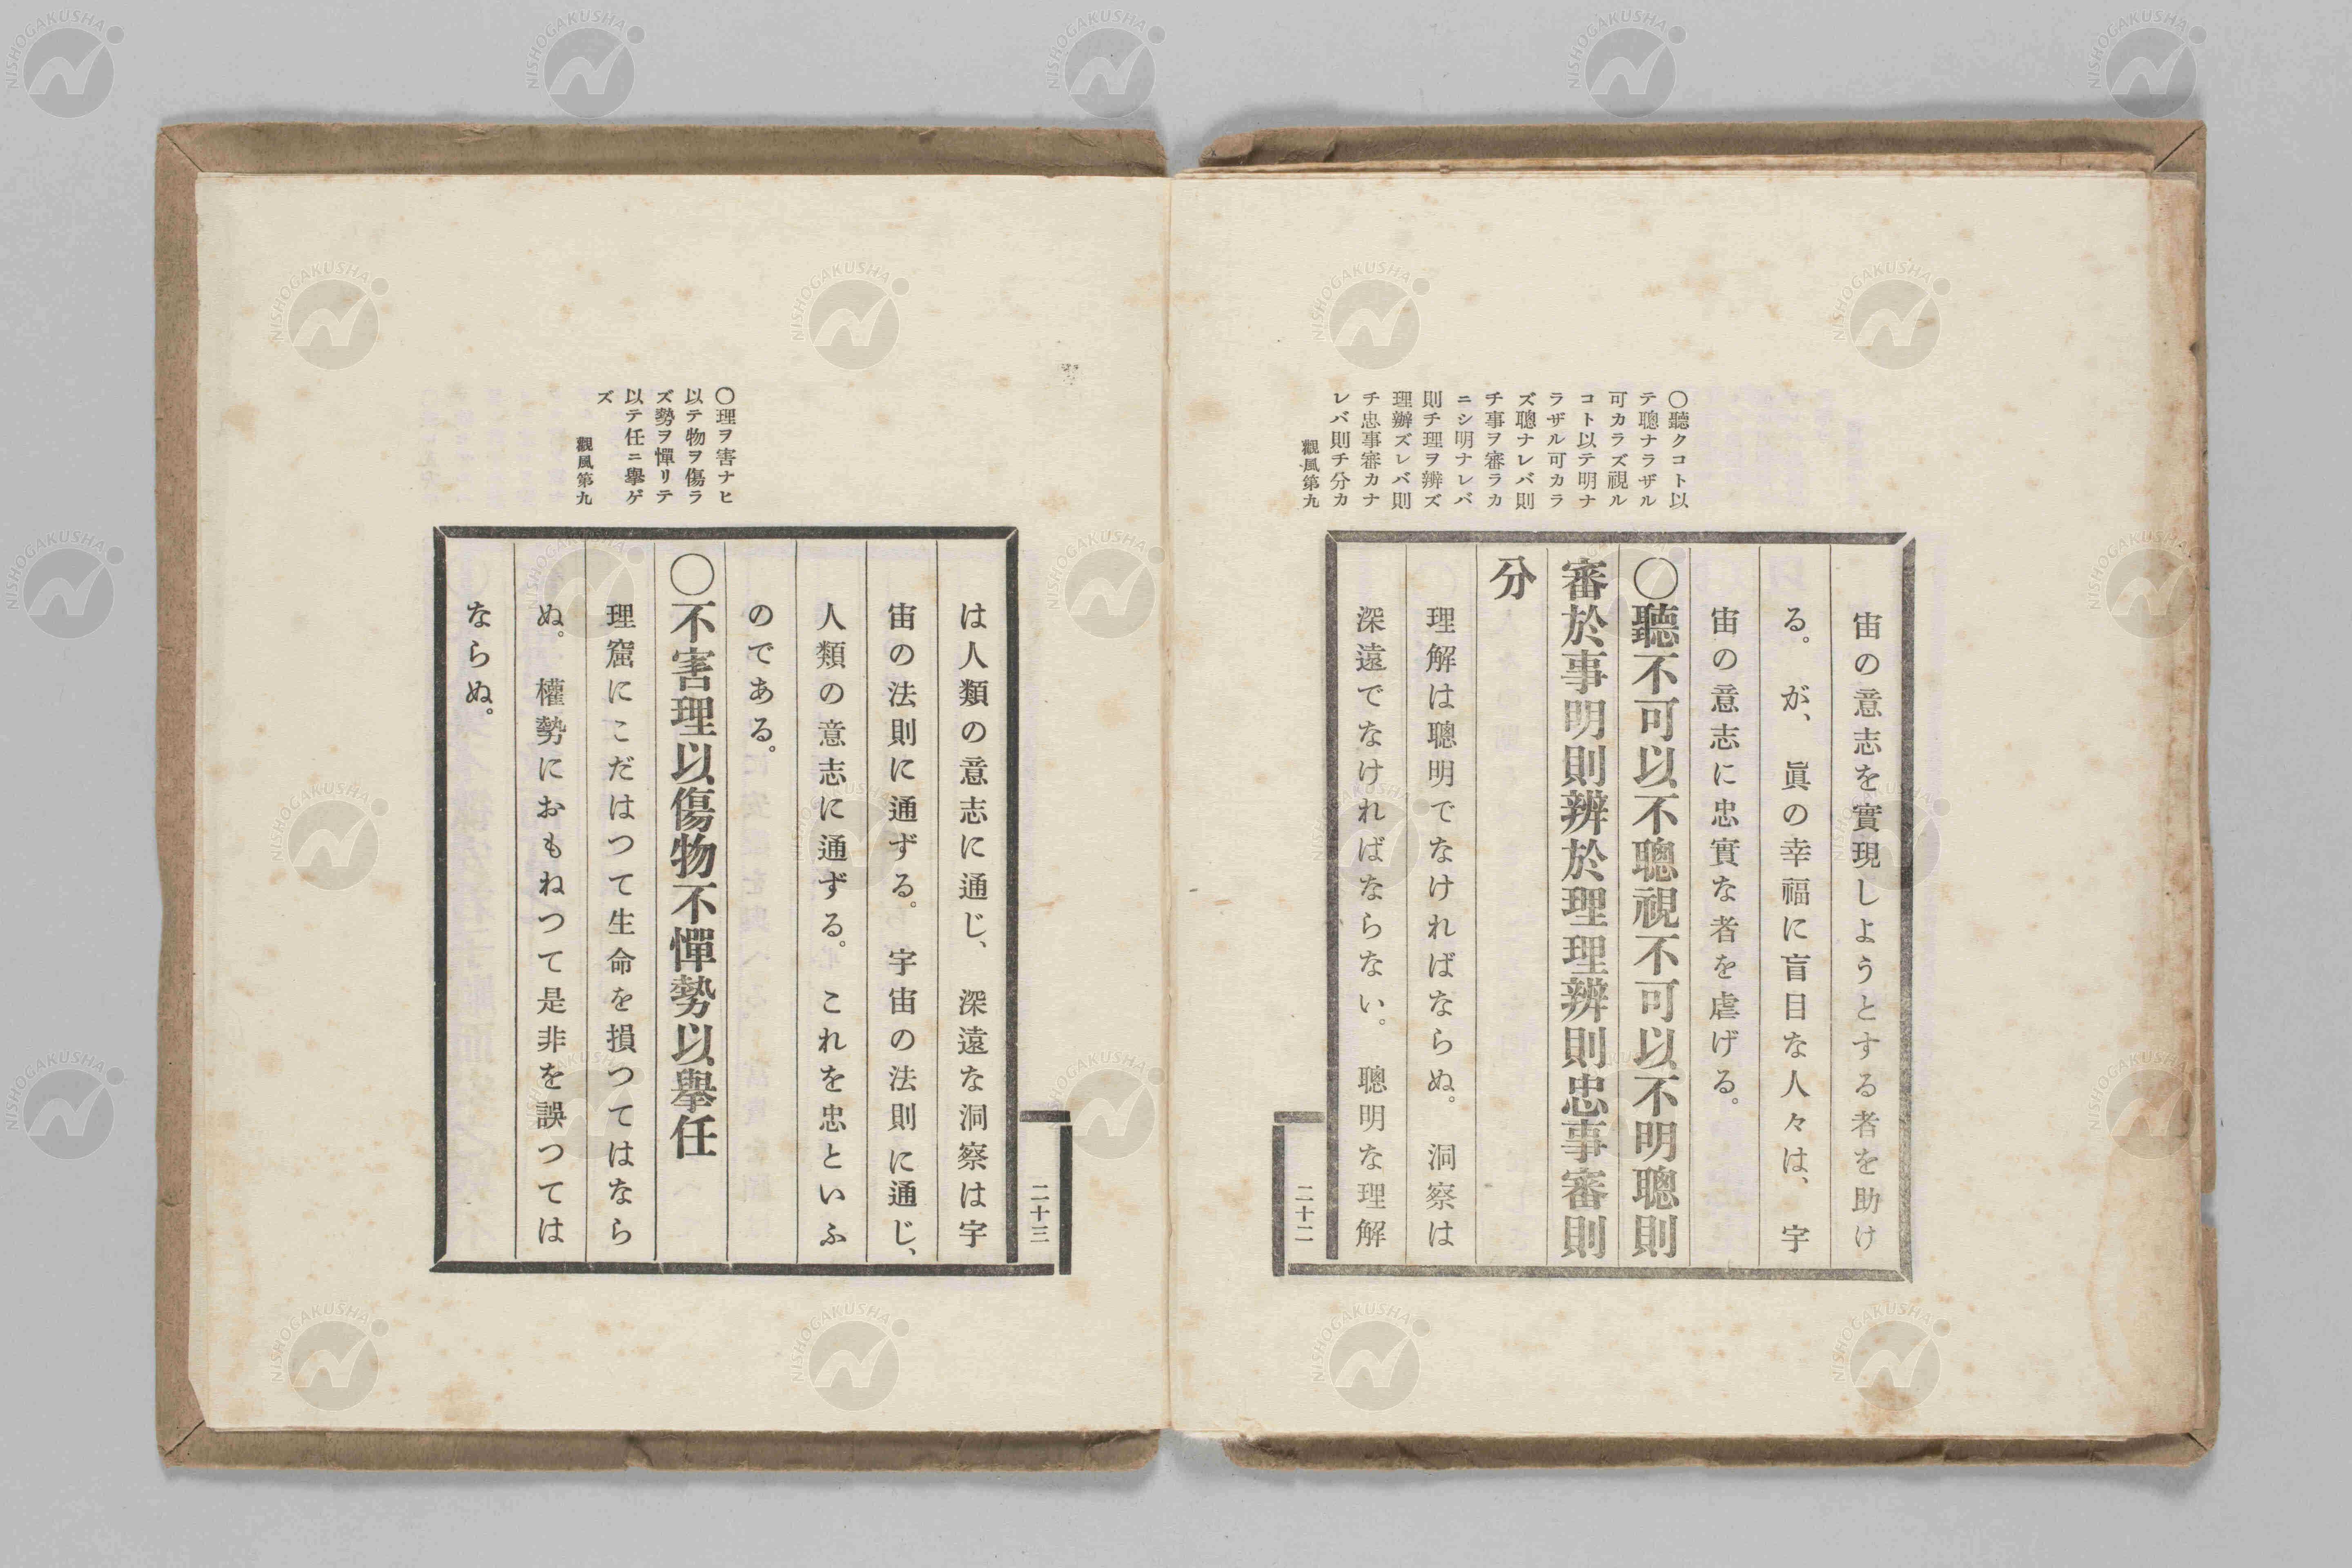 〇聽クコト以
テ聰ナラザル
可カラズ視ル
コト以テ明ナ
ラザル可カラ
ズ聰ナレバ則
チ事ヲ審ラカ
ニシ明ナレバ
則チ理ヲ辨ズ
理辨ズレバ則
チ忠事審カナ
レバ則チ分カ
觀風第九
宙の意志を實現しようとする者を助け
る。が、眞の幸福に盲目な人々は、宇
宙の意志に忠實な者を虐げる。
〇聽不可以不聰視不可以不明聰則
審於事明則辨於理理辨則忠事審則
分
理解は聰明でなければならぬ。洞察は
深遠でなければならない。聰明な理解
二十二
〇理ヲ害ナヒ
以テ物ヲ傷ラ
ズ勢ヲ憚リテ
以テ任ニ擧ゲ
ズ
觀風第九
は人類の意志に通じ、深遠な洞察は宇
宙の法則に通ずる。宇宙の法則に通じ、
人類の意志に通ずる。これを忠といふ
のである。
〇不害理以傷物不憚勢以擧任
理窟にこだはつて生命を損つてはなら
ぬ。權勢におもねつて是非を誤つては
ならぬ。
二十三
NISHOGAKUSHA